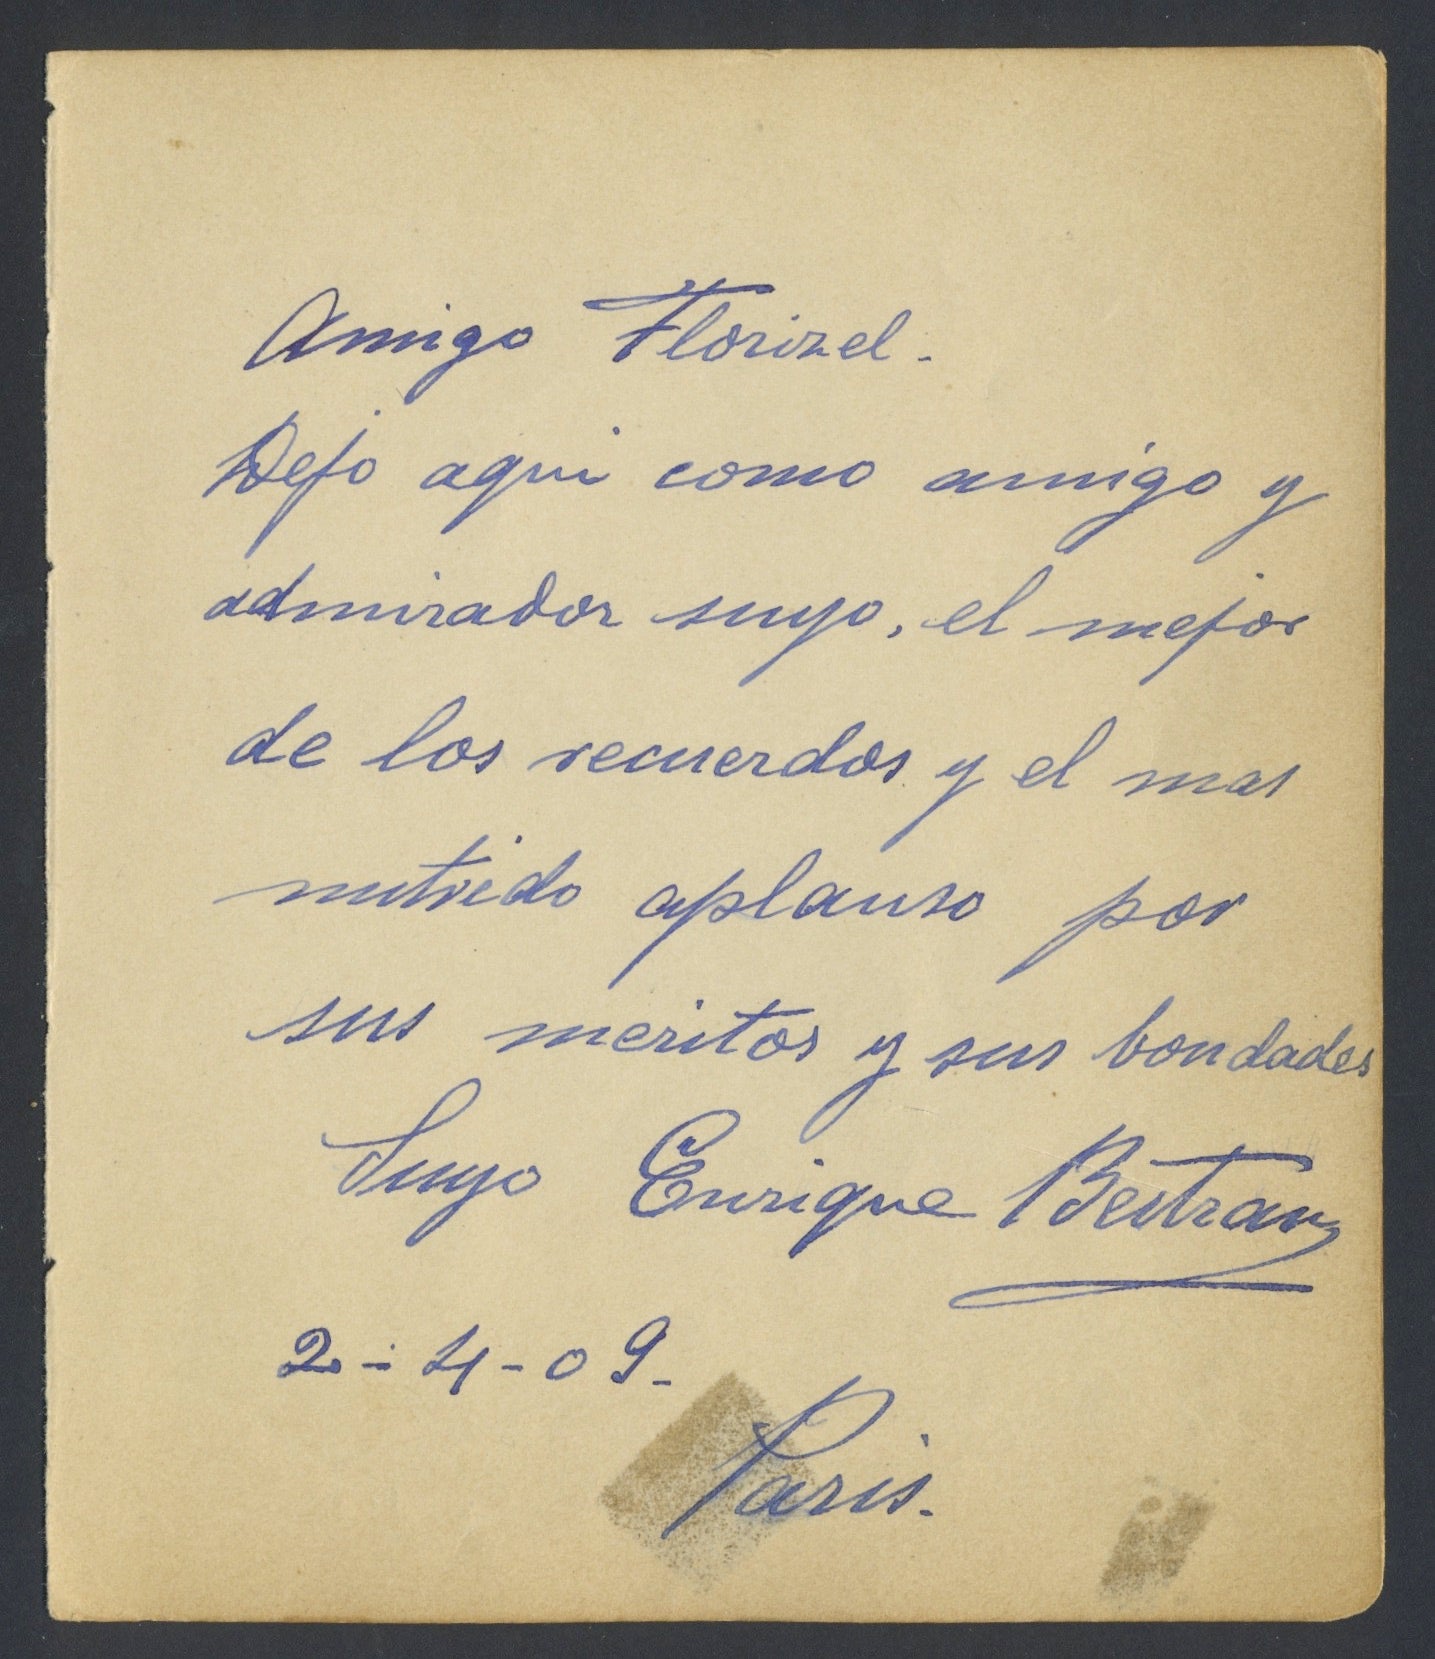 Amigo Florizel.
Dejo aqui como amigo y
admirador suyo, el mejor
de los recuerdos y el mas
nutrido aplauso por
sus meritos y sus bondades
Suyo Enrique Beltran
2-4-09-
Paris.